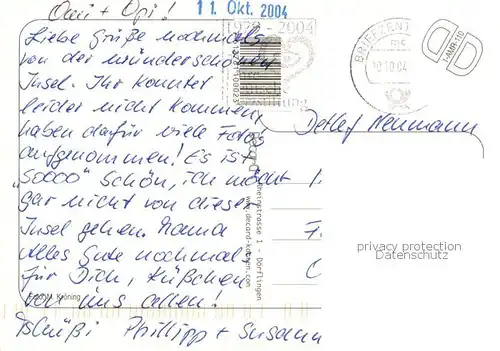 Omi + Opi!
11. Okt. 2004
1979 - 2004
Liebe Grüße nochmals
von der wunderschönen
Insel. Ihr konntet
leider nicht kommen,
haben dafür viele Fotos
aufgenommen! Es ist
"soooo" schön, ich möcht
gar nicht von dieser
Insel gehen. Mama
Alles Gute nochmal
für Dich, Küßchen
von uns allen!
Tschüßi Phillipp + Susann
BRIEFZENT
10.10.04
Detlef Neumann
Rheinstrasse 1 - Dörflingen
privacy protection
Datenschutz